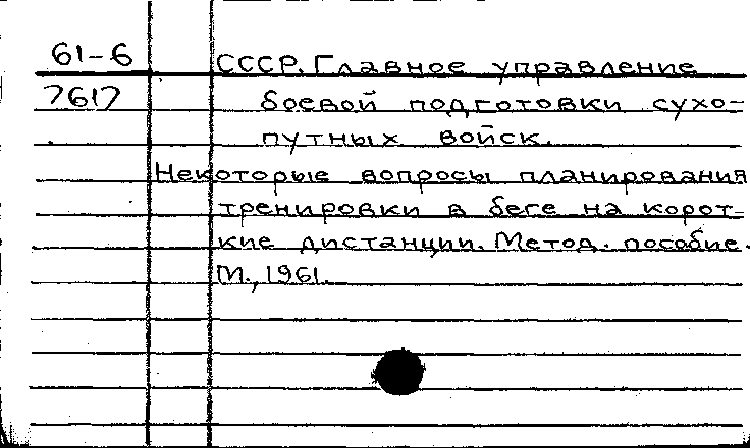 61-6 СССР. Главное управление
7617 боевой подготовки сухо-
путных войск.
Некоторые вопросы планирования
тренировки в беге на корот-
кие дистанции. Метод. пособие.
М., 1961.